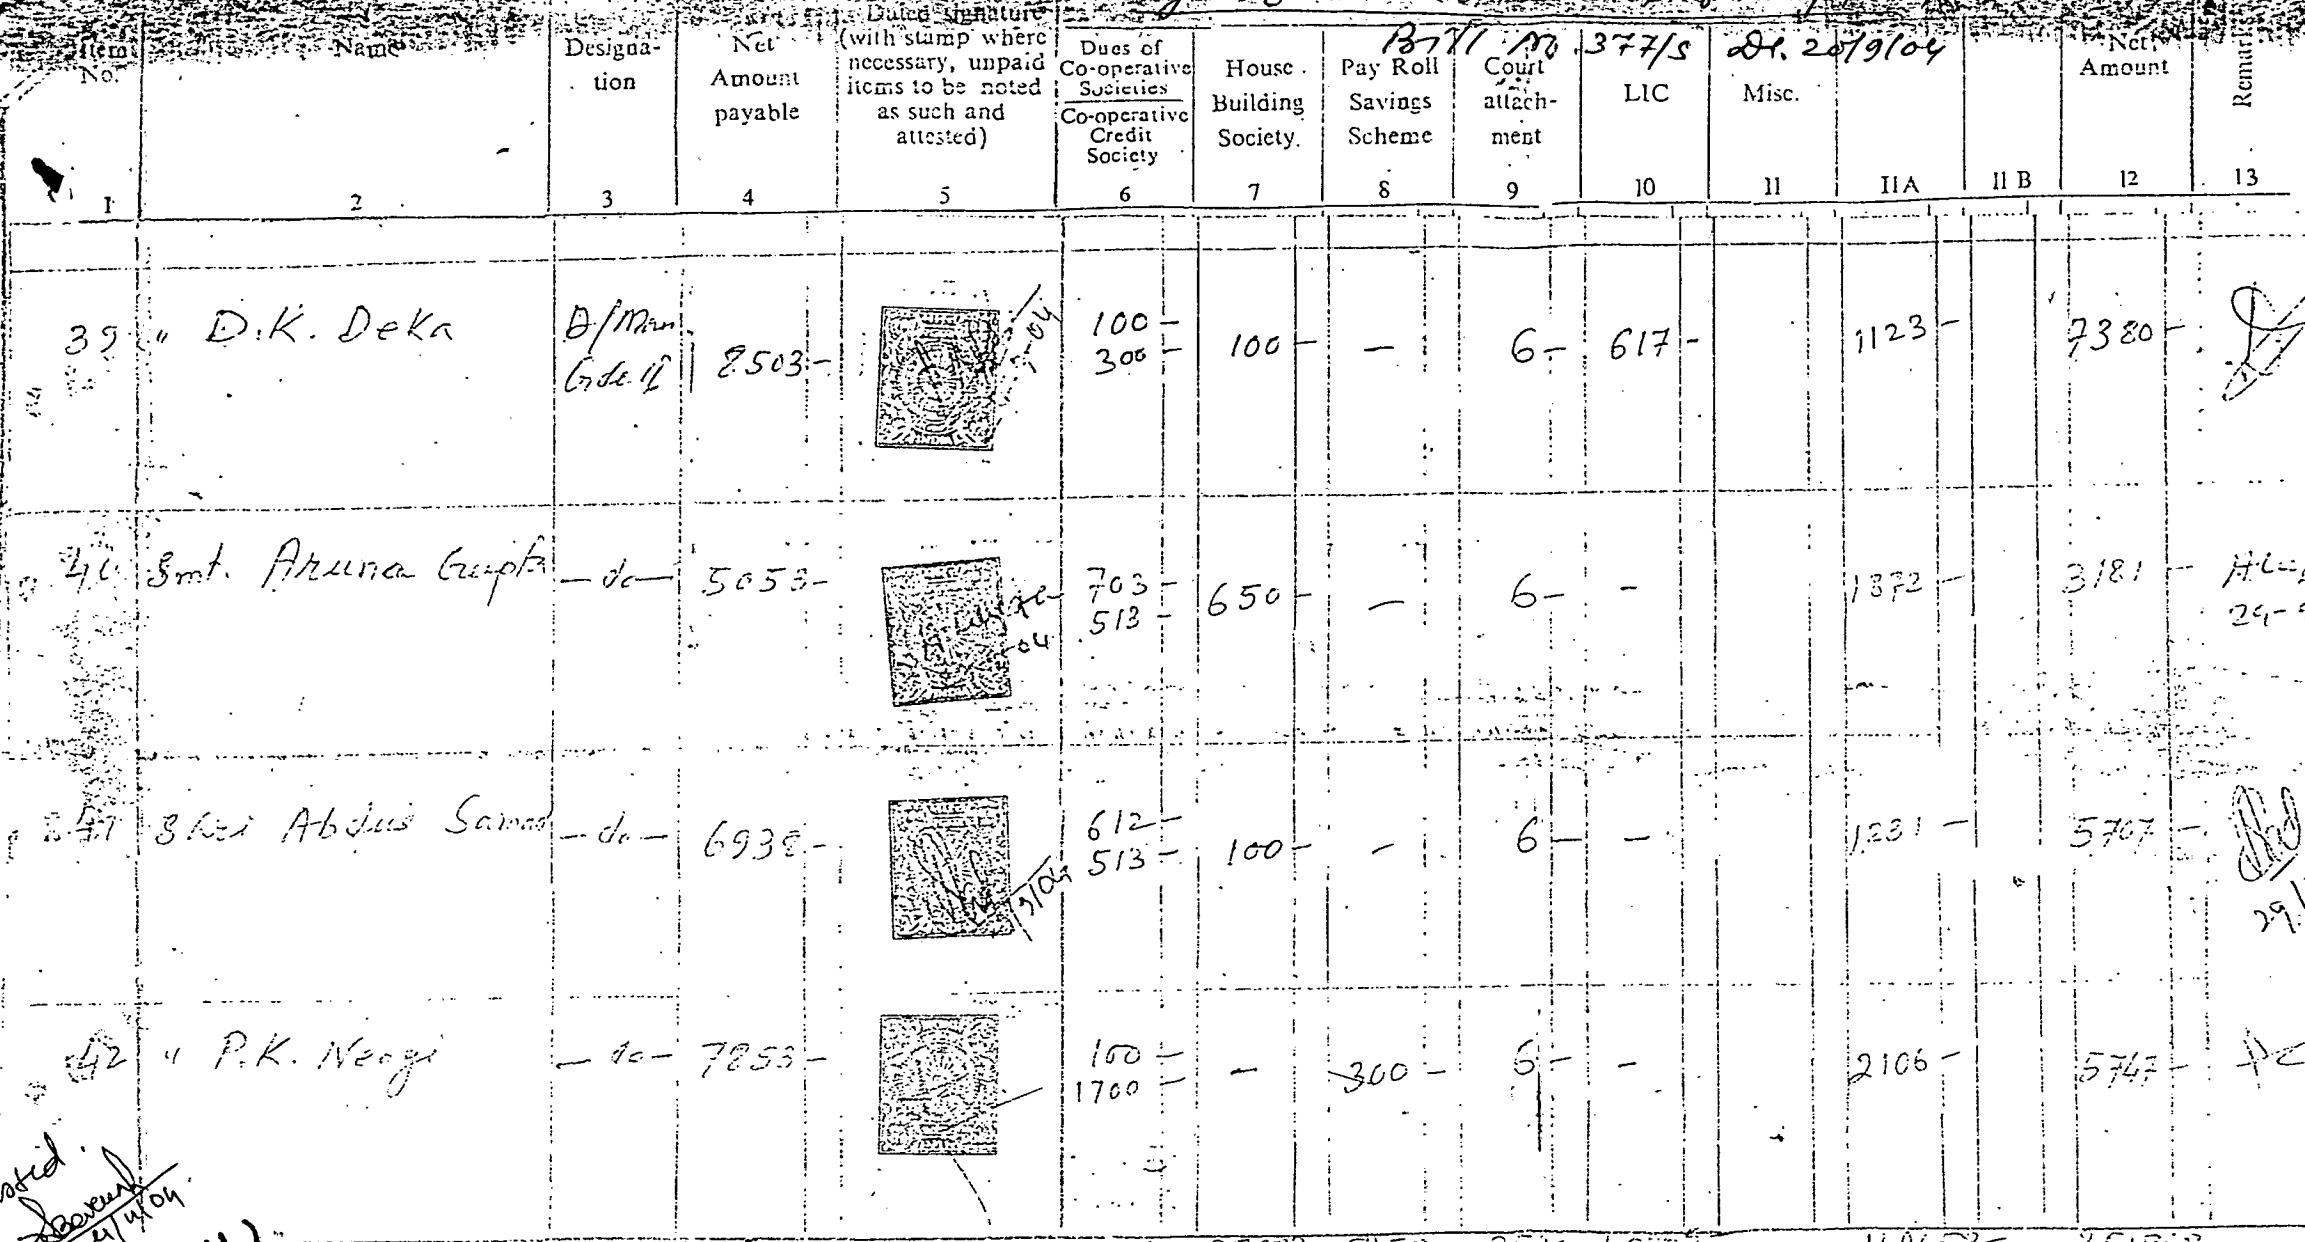 Bill No. 377/S Dt. 20/9/04
Item No. Name Designa-tion Net Amount payable Dated signature (with stamp where necessary, unpaid items to be noted as such and attested) Dues of Co-operative Societies Co-operative Credit Society House Building Society. Pay Roll Savings Scheme Court attach-ment LIC Misc. Net Amount Remarks
1 2 3 4 5 6 7 8 9 10 11 11A 11 B 12 13
39 " D.K. Deka D/Man Gde II 8503- 100- 300- 100- — 6- 617- 1123- 7380-
Smt. Aruna Gupta —do— 5053- 703- 513- 650- — 6- - 1872- 3181-
41 Shri Abdus Samad —do— 6938- 612- 513- 100- - 6- - 1231- 5707-
42 " P.K. Neogi —do— 7853- 100- 1700- - 300- 6- - 2106- 5747-